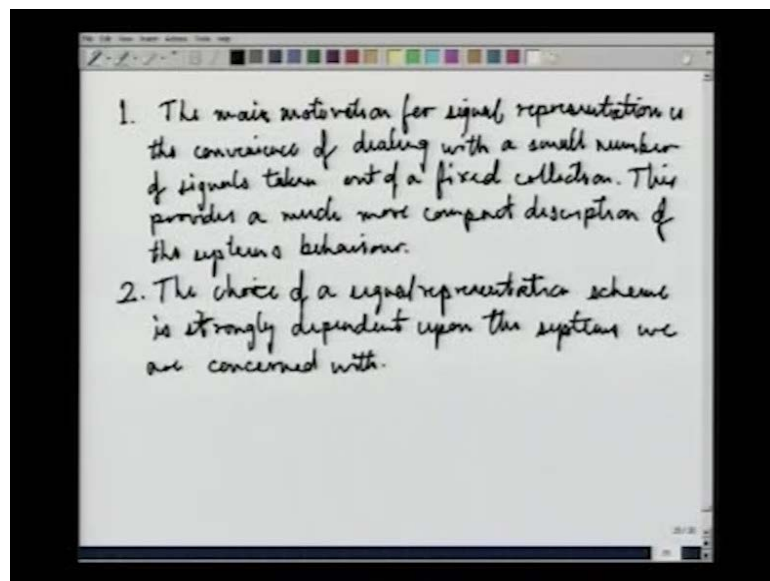 File Edit View Insert Actions Tools Help
1. The main motivation for signal representation is
the convenience of dealing with a small number
of signals taken out of a fixed collection. This
provides a much more compact description of
the systems behaviour.
2. The choice of a signal representation scheme
is strongly dependent upon the systems we
are concerned with.